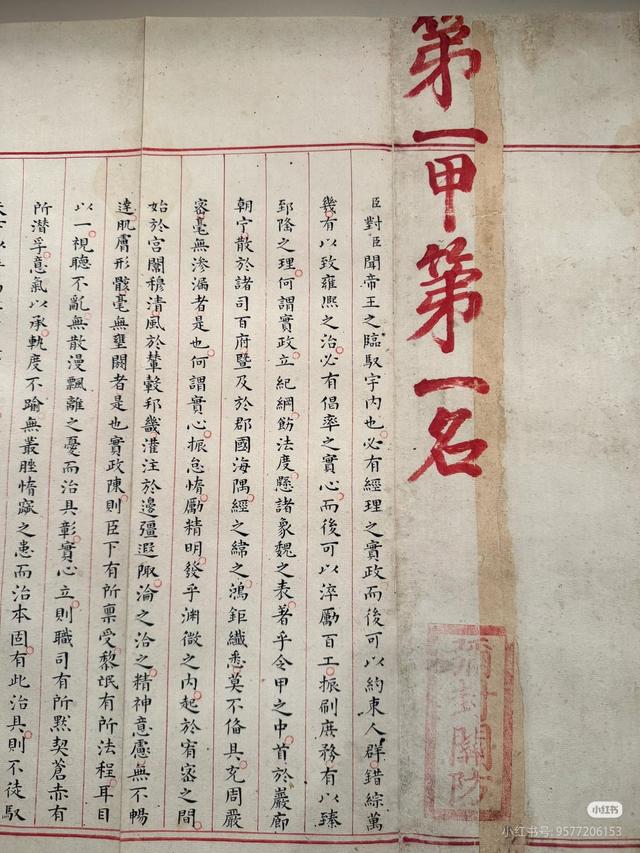 第一甲第一名
彌封關防
臣對臣聞帝王之臨馭宇内也必有經理之實政而後可以約束人群錯綜萬
幾有以致雍熙之治必有倡率之實心而後可以淬勵百工振刷庶務有以臻
郅隆之理何謂實政立紀綱飭法度懸諸象魏之表著乎令甲之中首於巖廊
朝宁散於諸司百府暨及於郡國海隅經之緯之鴻鉅纖悉莫不俻具充周嚴
密毫無滲漏者是也何謂實心振怠惰勵精明發乎渊微之内起於宥密之間
始於宫闈穆清風於輦轂邦畿灌注於邊疆遐陬淪之洽之精神意慮無不暢
達肌膚形骸毫無壅閼者是也實政陳則臣下有所稟受黎氓有所法程耳目
以一視聽不亂無散漫飄離之憂而治具彰實心立則職司有所默契蒼赤有
所潜孚意氣以承軌度不踰無叢脞惰窳之患而治本固有此治具則不徒馭
小红书
小红书号: 9577206153